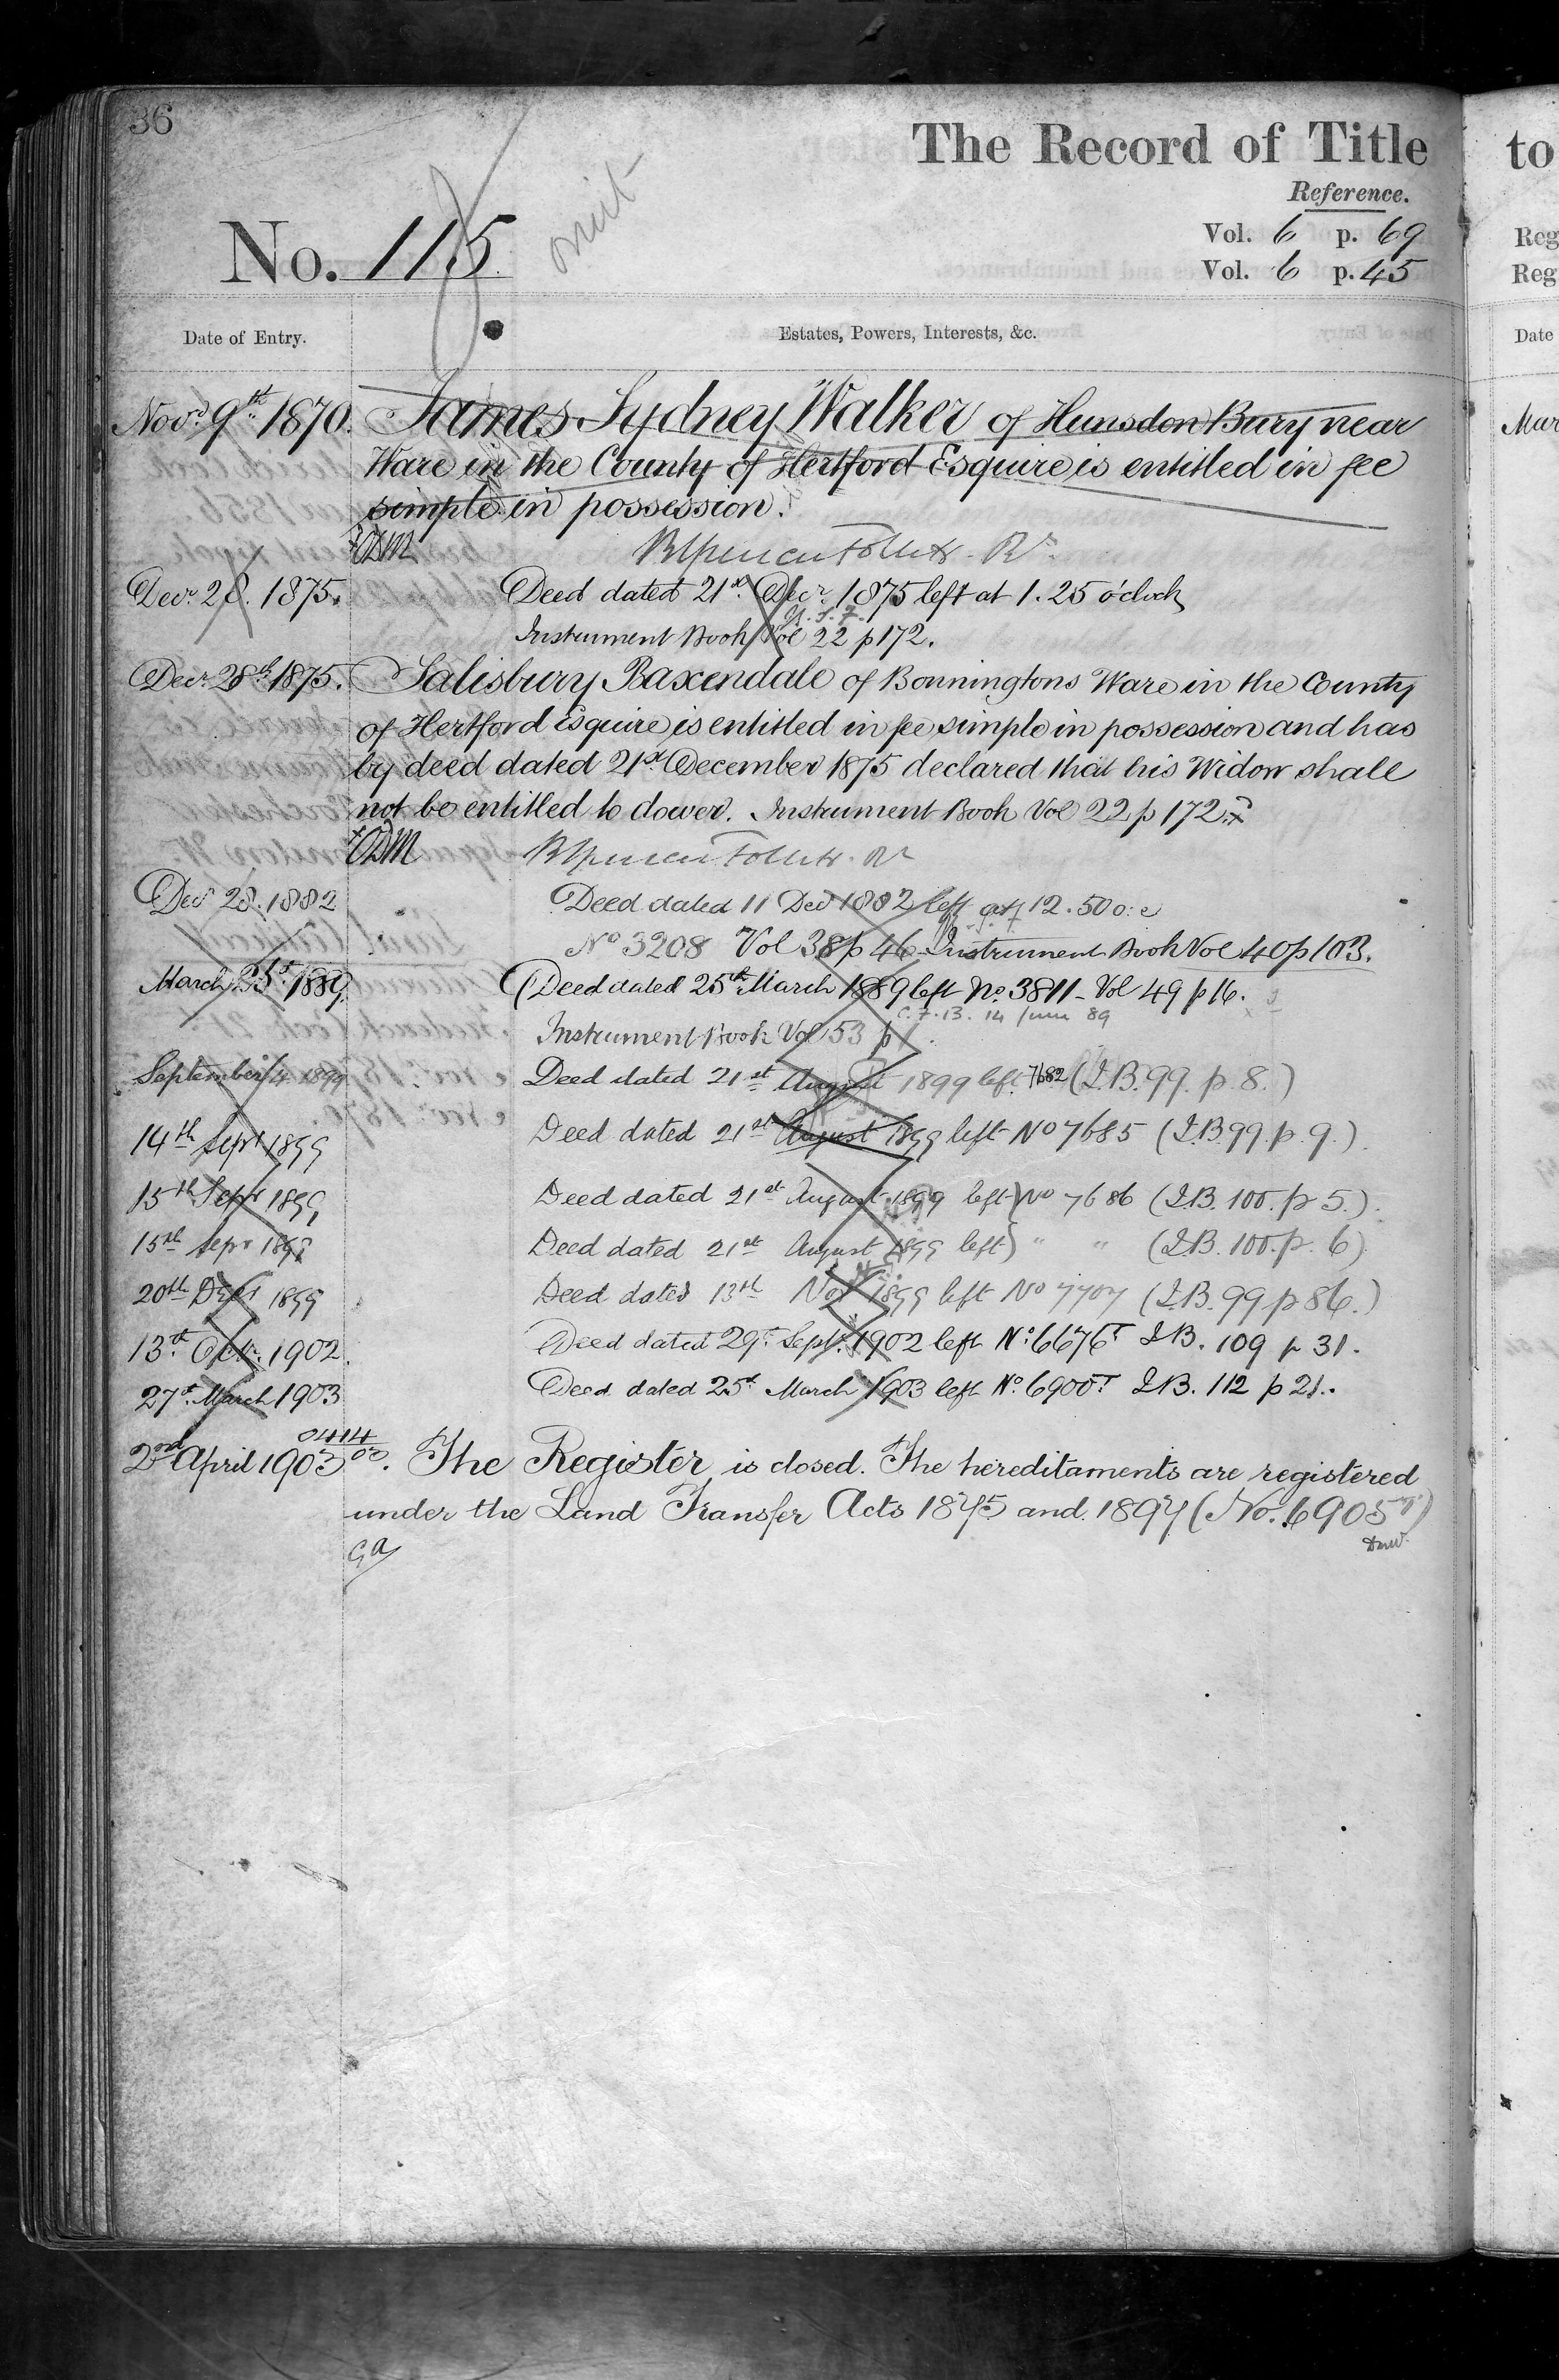 36
The Record of Title
Reference.
omit
No. 115
Vol. 6 p. 69
Vol. 6 p. 45
Date of Entry.
Estates, Powers, Interests, &c.
Novr. 9th 1870. James Sydney Walker of Hunsdon Bury near
Ware in the County of Hertford Esquire is entitled in fee
simple in possession.
Decr. 28. 1875. Deed dated 21st Decr. 1875 left at 1.25 o'clock
Instrument Book Vol 22 p 172.
Decr. 28th 1875. Salisbury Baxendale of Bonningtons Ware in the County
of Hertford Esquire is entitled in fee simple in possession and has
by deed dated 21st December 1875 declared that his Widow shall
not be entitled to dower. Instrument Book Vol 22 p 172.
Decr 28. 1882 Deed dated 11 Decr 1882 left at 12.50 o.c
No 3208 Vol 38 p 46 Instrument Book Vol 40 p 103.
March 1889. Deed dated 25th March 1889 left No. 3811 - Vol 49 p 16.
C.F.B. 14 June 89
Instrument Book Vol 53 p 1.
September 4 1899 Deed dated 21st August 1899 left 7682 (I.B. 99. p. 8.)
14th Sept 1899 Deed dated 21st August 1899 left No 7685 (I.B. 99. p. 9.)
15th Sepr 1899 Deed dated 21st August 1899 left } No 7686 (I.B. 100. p 5.)
15th Sepr 1899 Deed dated 21st August 1899 left } " " (I.B. 100. p. 6)
20th 1899 Deed dated 13th Nov 1899 left No 7707 (I.B. 99 p 86.)
13th Octr. 1902. Deed dated 29th Sept. 1902 left No. 6676T I.B. 109 p 31.
27th March 1903 Deed dated 25th March 1903 left No. 6900T I.B. 112 p 21.
2nd April 1903. The Register is closed. The hereditaments are registered
under the Land Transfer Acts 1875 and 1897 (No. 6905T)
to
Reg
Reg
Date
Mar